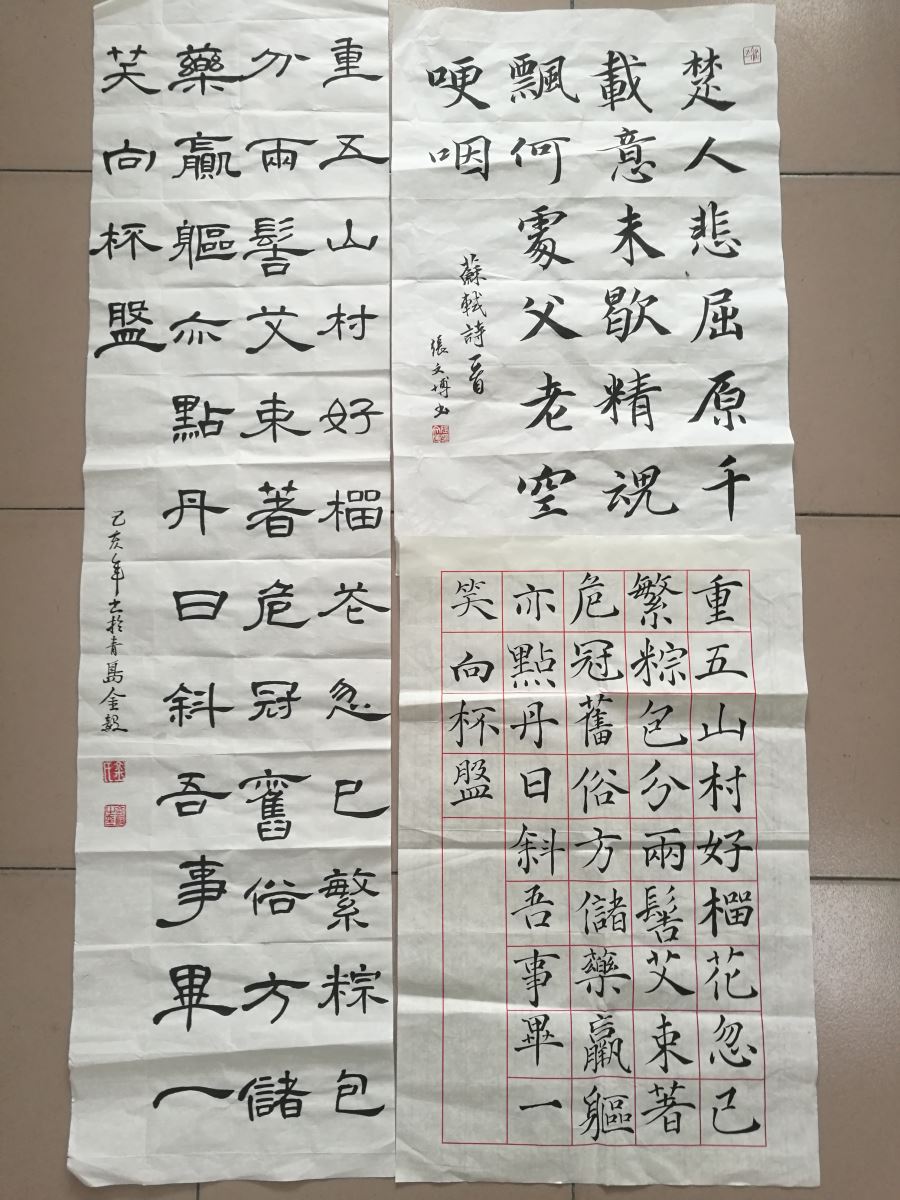 楚人悲屈原千
載意未歇精魂
飄何處父老空
哽咽
蘇軾詩一首
張文博书
重五山村好榴花忽已繁粽包
分兩髻艾束著危冠舊俗方儲
藥羸軀亦點丹日斜吾事畢一
笑向杯盤
己亥年书於青島金毅
重五山村好榴花忽已
繁粽包分兩髻艾束著
危冠舊俗方儲藥羸軀
亦點丹日斜吾事畢一
笑向杯盤